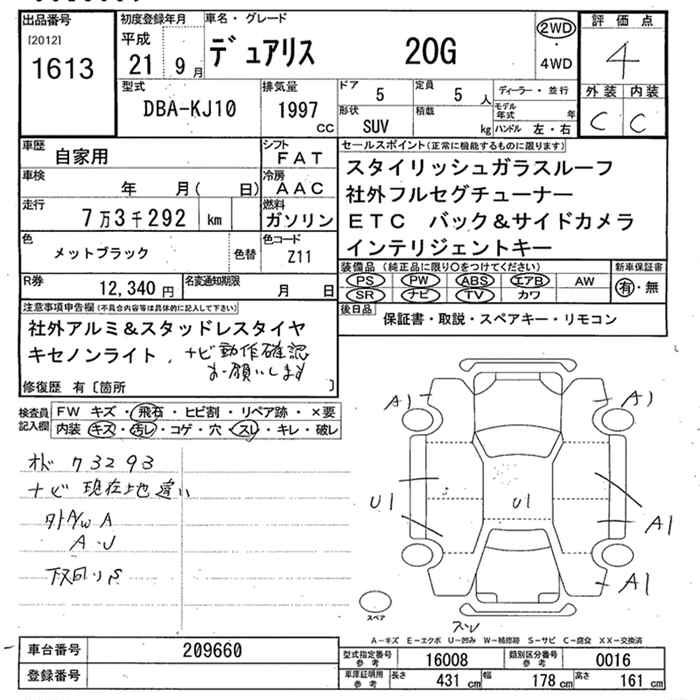 出品番号
[2012]
1613
初度登録年月
平成
21 9月
車名・グレード
デュアリス 20G
2WD
・
4WD
評価点
4
外装 内装
C C
型式
DBA-KJ10
排気量
1997 cc
ドア 5
定員 5 人
ディーラー・並行
形状 SUV
積載 kg
モデル年式 年
ハンドル 左・右
車歴 自家用
シフト FAT
車検 年 月( 日)
冷房 AAC
走行 7万3千292 km
燃料 ガソリン
色 メットブラック 色替
色コード Z11
R券 12,340円
名変通知期限 月 日
セールスポイント(正常に機能するものに限ります)
スタイリッシュガラスルーフ
社外フルセグチューナー
ETC バック&サイドカメラ
インテリジェントキー
装備品(純正品に限り○をつけてください)
PS PW ABS エアB AW
SR ナビ TV カワ
新車保証書
有・無
後日品 保証書・取説・スペアキー・リモコン
注意事項申告欄(不具合内容等は具体的に記入して下さい)
社外アルミ&スタッドレスタイヤ
キセノンライト、ナビ動作確認
お願いします
修復歴 有〔箇所 〕
検査員記入欄
FW キズ・飛石・ヒビ割・リペア跡・×要
内装 キズ・汚レ・コゲ・穴・スレ・キレ・破レ
73293
ナビ 現在地違い
A/W A
A・U
下回りS
A1 A1
U1 U1 A1
A1
スペア
A-キズ E-エクボ U-凹み W-補修跡 S-サビ C-腐食 XX-交換済
車台番号 209660
登録番号
型式指定番号参考 16008
類別区分番号参考 0016
車庫証明用参考 長さ 431 cm 幅 178 cm 高さ 161 cm